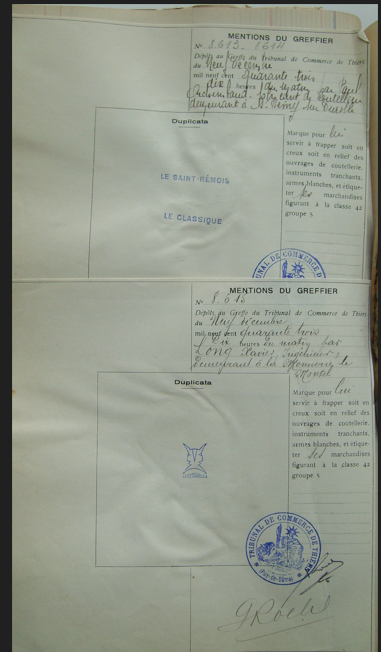 MENTIONS DU GREFFIER
N° 8613. 8614
Dépôts au Greffe du Tribunal de Commerce de Thiers
du Neuf Décembre
mil neuf cent quarante trois
dix heures du matin par
demeurant à St Rémy sur Durolle
Duplicata
Marque pour lui
servir à frapper soit en
creux soit en relief des
ouvrages de coutellerie,
instruments tranchants,
armes blanches, et étique-
ter ses marchandises
figurant à la classe 42
groupe 3
LE SAINT-RÉMOIS
LE CLASSIQUE
TRIBUNAL DE COMMERCE DE
MENTIONS DU GREFFIER
N° 8615
Dépôts au Greffe du Tribunal de Commerce de Thiers
du Neuf décembre
mil neuf cent quarante trois
Dix heures du matin par
demeurant à la
Duplicata
Marque pour lui
servir à frapper soit en
creux soit en relief des
ouvrages de coutellerie,
instruments tranchants,
armes blanches, et étique-
ter ses marchandises
figurant à la classe 42
groupe 3
TRIBUNAL DE COMMERCE DE THIERS
(Puy-de-Dôme)